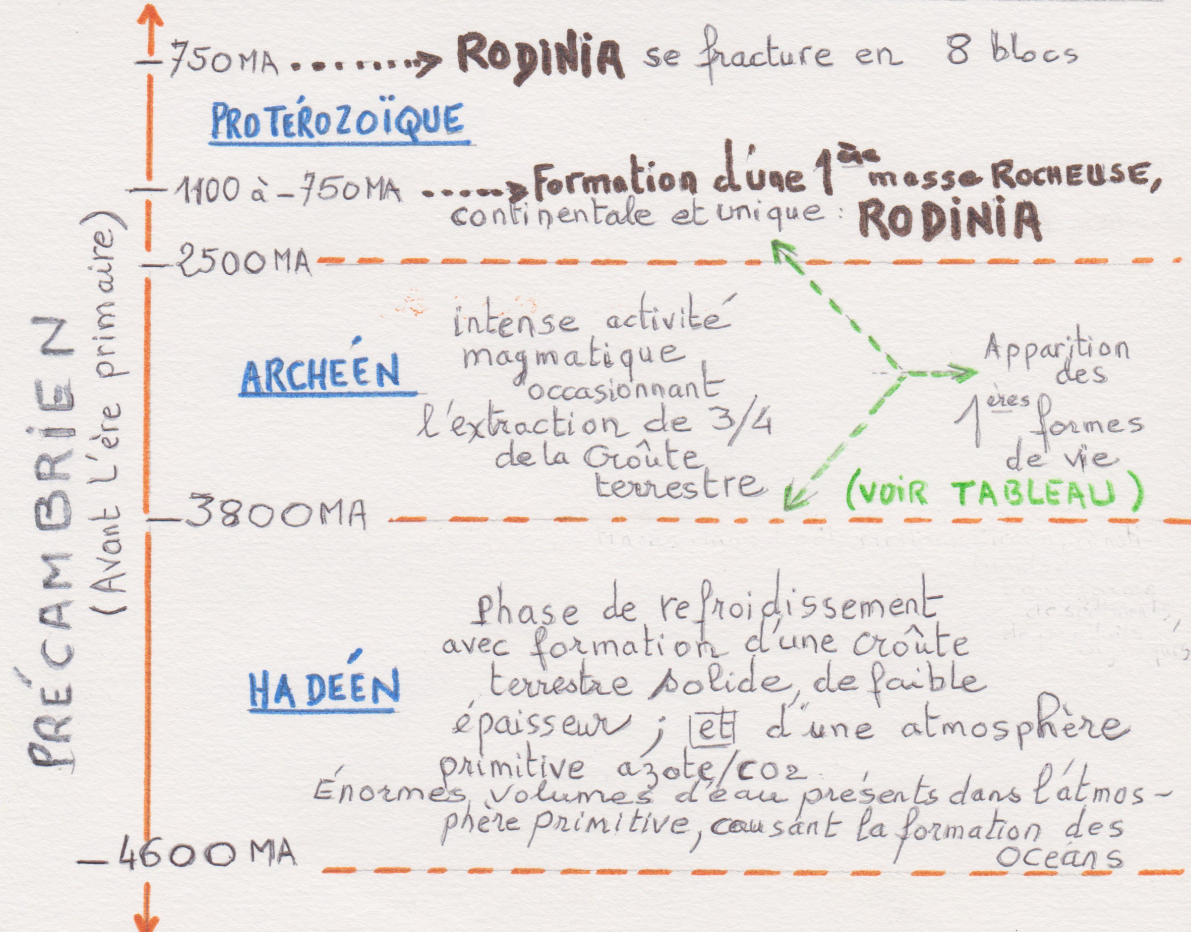 -750MA ········> RODINIA se fracture en 8 blocs
PROTÉROZOÏQUE
-1100 à -750MA -----> Formation d'une 1ère masse ROCHEUSE,
continentale et unique : RODINIA
-2500MA
PRÉCAMBRIEN
(Avant L'ère primaire)
ARCHEÉN
intense activité
magmatique
occasionnant
l'extraction de 3/4
de la Croûte
terrestre
Apparition
des
1ères formes
de vie
(VOIR TABLEAU)
-3800MA
HADEÉN
Phase de refroidissement
avec formation d'une croûte
terrestre solide, de faible
épaisseur ; et d'une atmosphère
primitive azote/CO2
Énormes volumes d'eau présents dans l'atmos-
phère primitive, causant la formation des
océans
-4600 MA